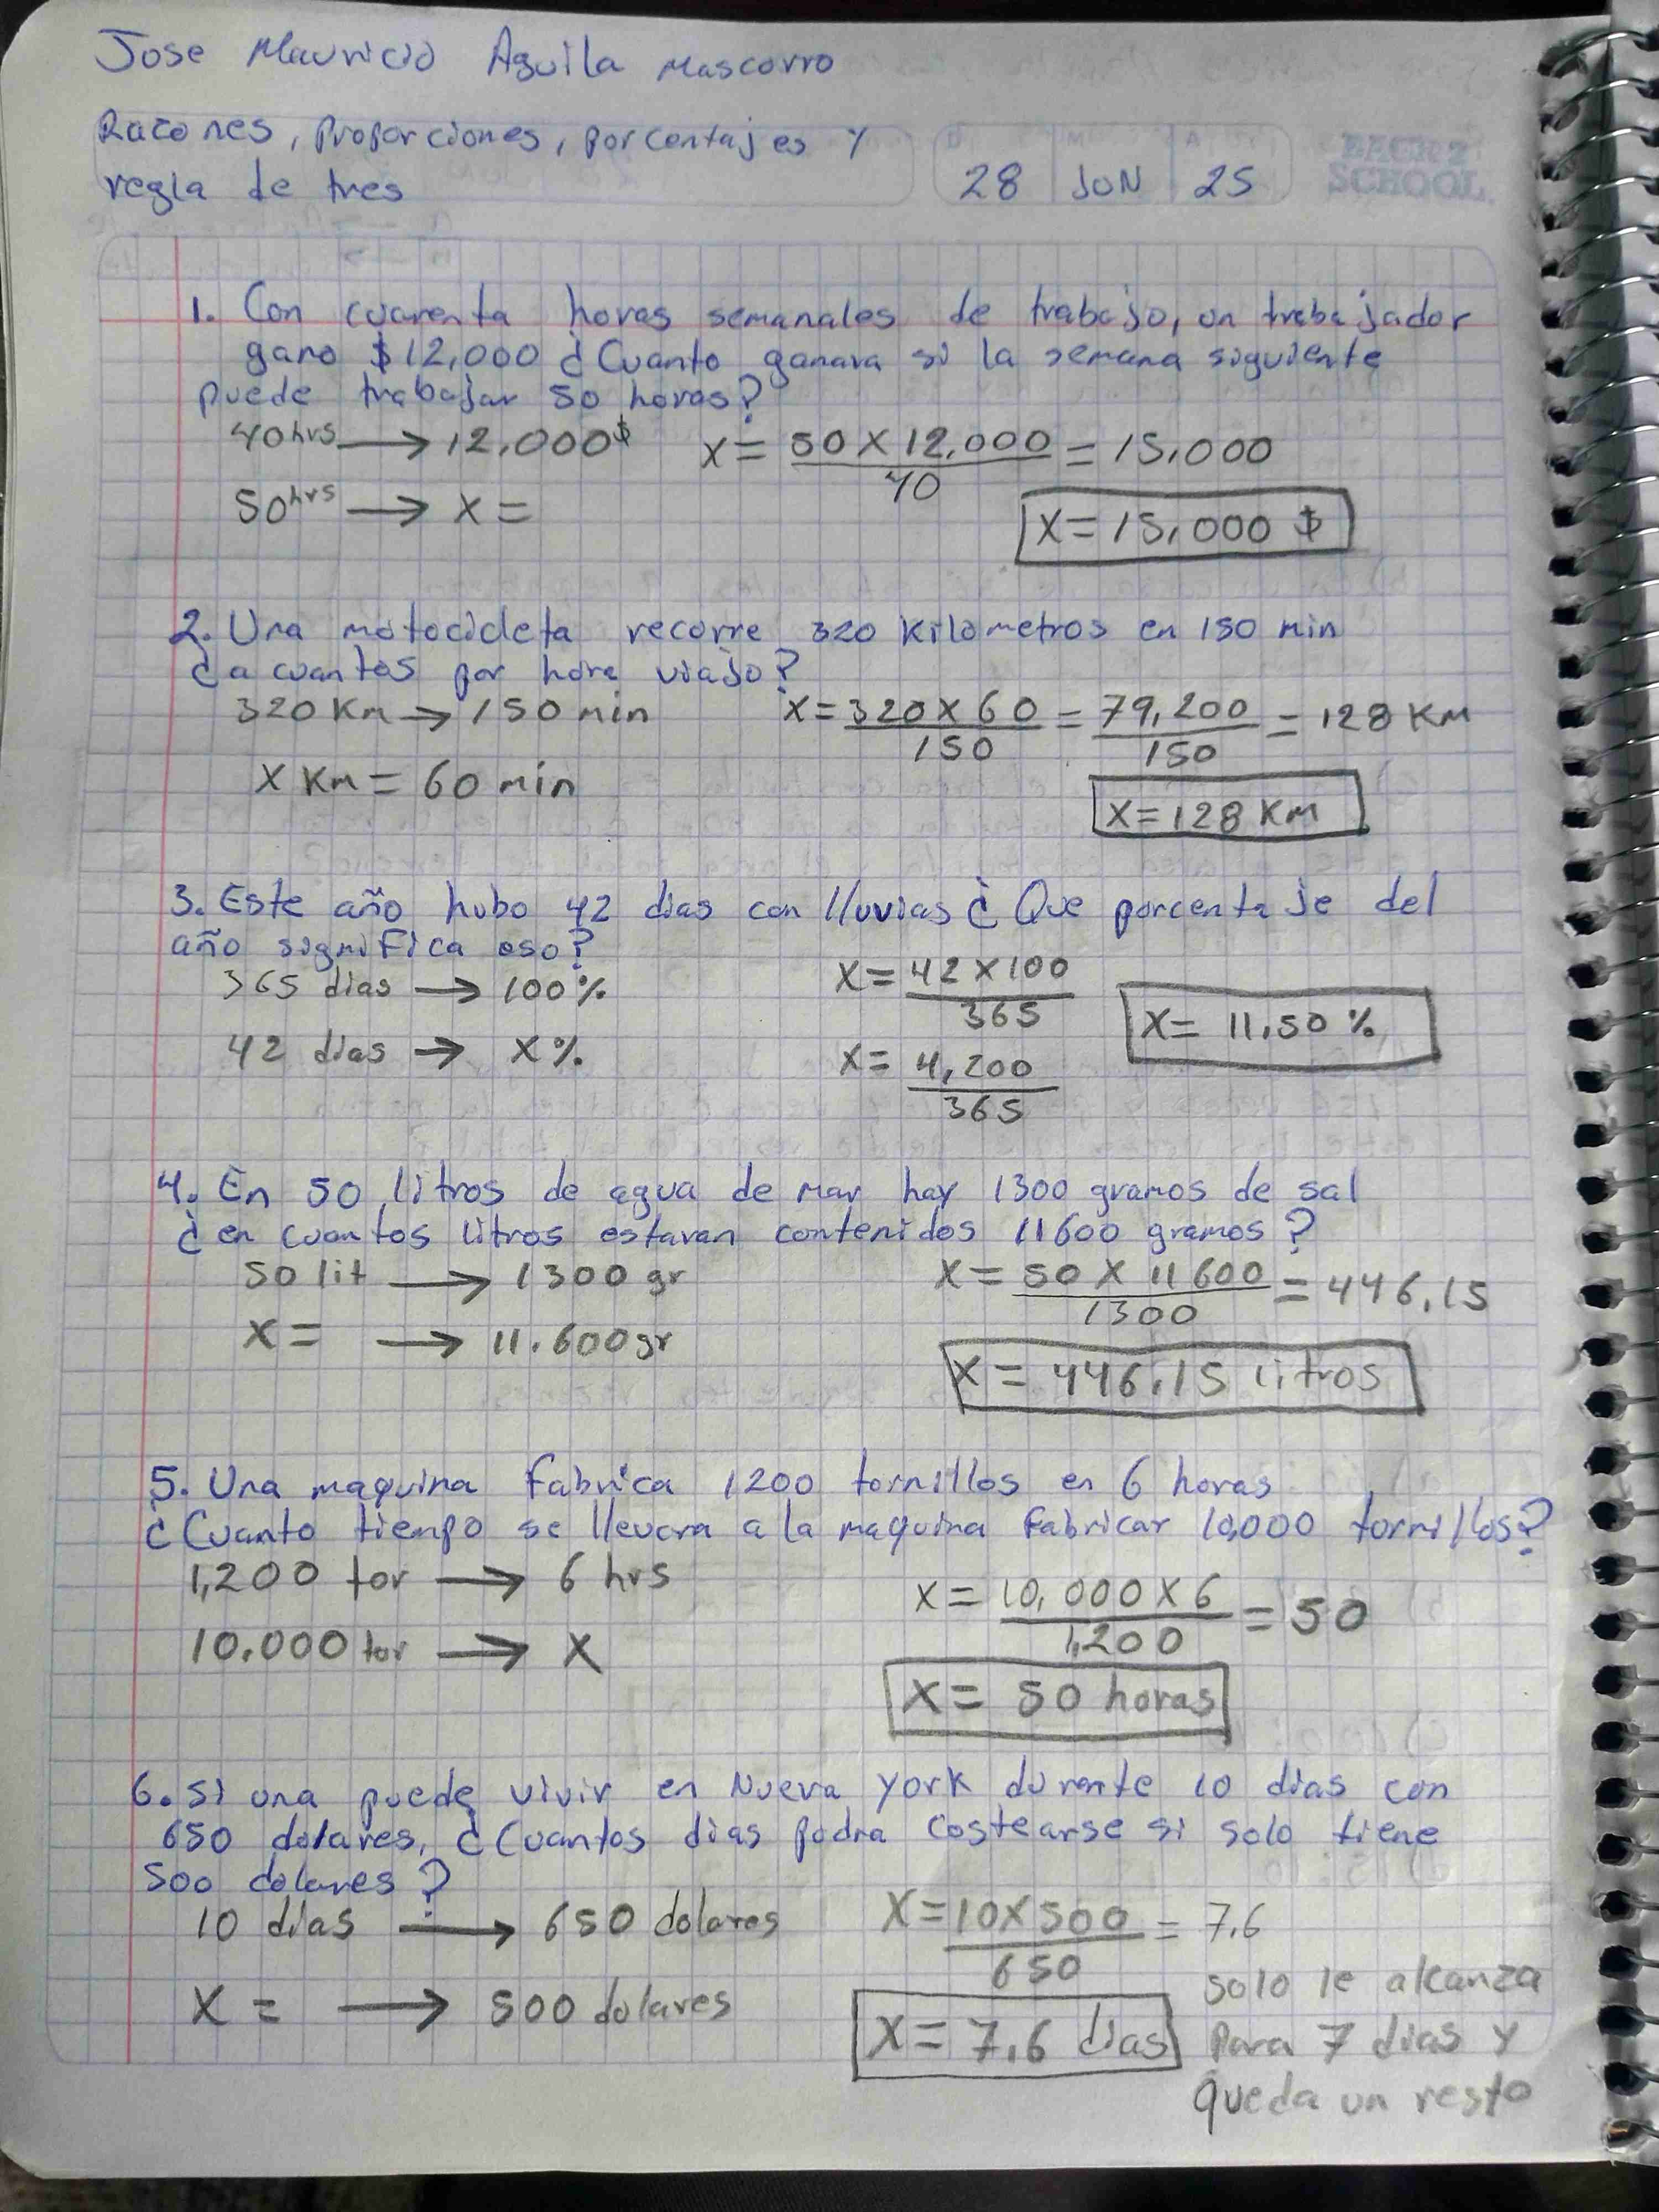 Jose Mauricio Aguila Mascorro
Razones, Proporciones, porcentajes y
regla de tres
D M A
28 JUN 25
BACK 2
SCHOOL
1. Con cuarenta horas semanales de trabajo, un trabajador
gano $12,000 ¿Cuanto ganara si la semana siguiente
puede trabajar 50 horas?
40hrs → 12,000$ x = 50 x 12,000 / 40 = 15,000
50hrs → x =
x = 15,000 $
2. Una motocicleta recorre 320 Kilometros en 150 min
¿a cuantos por hora viajo?
320 Km → 150 min x = 320 x 60 / 150 = 79,200 / 150 = 128 KM
x Km = 60 min
x = 128 KM
3. Este año hubo 42 dias con lluvias ¿Que porcentaje del
año significa eso?
365 dias → 100% x = 42 x 100 / 365
x = 11,50 %
42 dias → x% x = 4,200 / 365
4. En 50 litros de agua de mar hay 1300 gramos de sal
¿en cuantos litros estaran contenidos 11600 gramos?
50 lit → 1300 gr x = 50 x 11600 / 1300 = 446,15
x = → 11.600gr
x = 446,15 litros
5. Una maquina fabrica 1200 tornillos en 6 horas
¿Cuanto tiempo se llevara a la maquina fabricar 10,000 tornillos?
1,200 tor → 6 hrs x = 10,000 x 6 / 1,200 = 50
10.000 tor → x
x = 50 horas
6. Si una puede vivir en Nueva york durante 10 dias con
650 dolares, ¿Cuantos dias podra costearse si solo tiene
500 dolares?
10 dias → 650 dolares x = 10 x 500 / 650 = 7,6
x = → 500 dolares
x = 7,6 dias
solo le alcanza
para 7 dias y
queda un resto